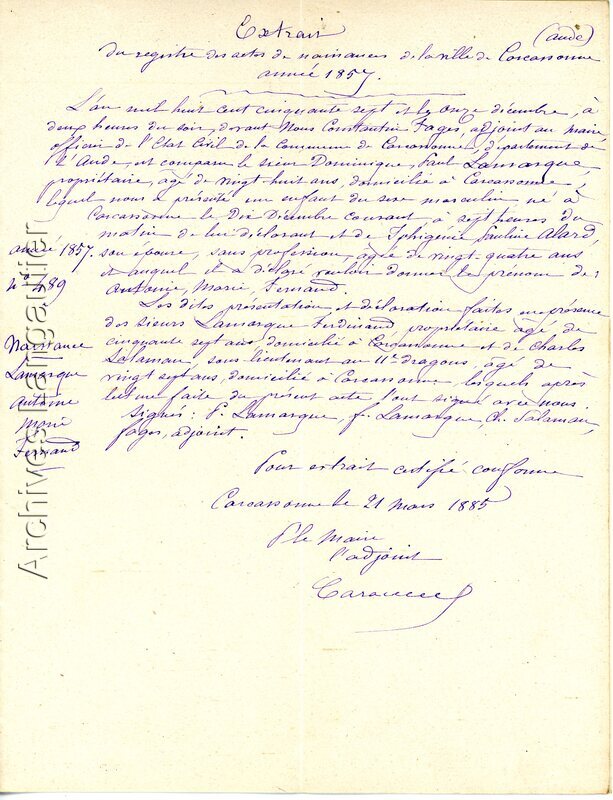 Extrait
(aude)
du registre des actes de naissances de la ville de Carcassonne
année 1857.
L'an mil huit cent cinquante sept et le onze décembre, à
deux heures du soir, devant Nous Constantin Fages, adjoint au maire
officier de l'Etat Civil de la Commune de Carcassonne, département de
l'Aude, est comparu le sieur Dominique, Paul Lamarque,
propriétaire, agé de vingt huit ans, domicilié à Carcassonne,
lequel nous a présenté un enfant du sexe masculin né à
Carcassonne le Dix Décembre courant à sept heures du
matin de lui déclarant et de Iphigénie Pauline Alard,
son épouse, sans profession, agée de vingt-quatre ans
et auquel il a déclaré vouloir donner le prénom de:
Antoine, Marie, Fernand.
Les dites présentation et déclaration faites en présence
des sieurs Lamarque Ferdinand, propriétaire agé de
cinquante sept ans, domicilié à Carcassonne et de Charles
Salaman, sous lieutenant au 11e dragons, agé de
vingt sept ans, domicilié à Carcassonne, lesquels après
lecture faite du présent acte l'ont signé avec nous.
Signés: P. Lamarque, f. Lamarque, Ch. Salaman,
fages, adjoint.
année 1857.
N° 489
Naissance
Lamarque
Antoine
Marie
Fernand
Pour extrait certifié conforme
Carcassonne le 21 mars 1885
P. le Maire
l'adjoint
Archives Familigautier